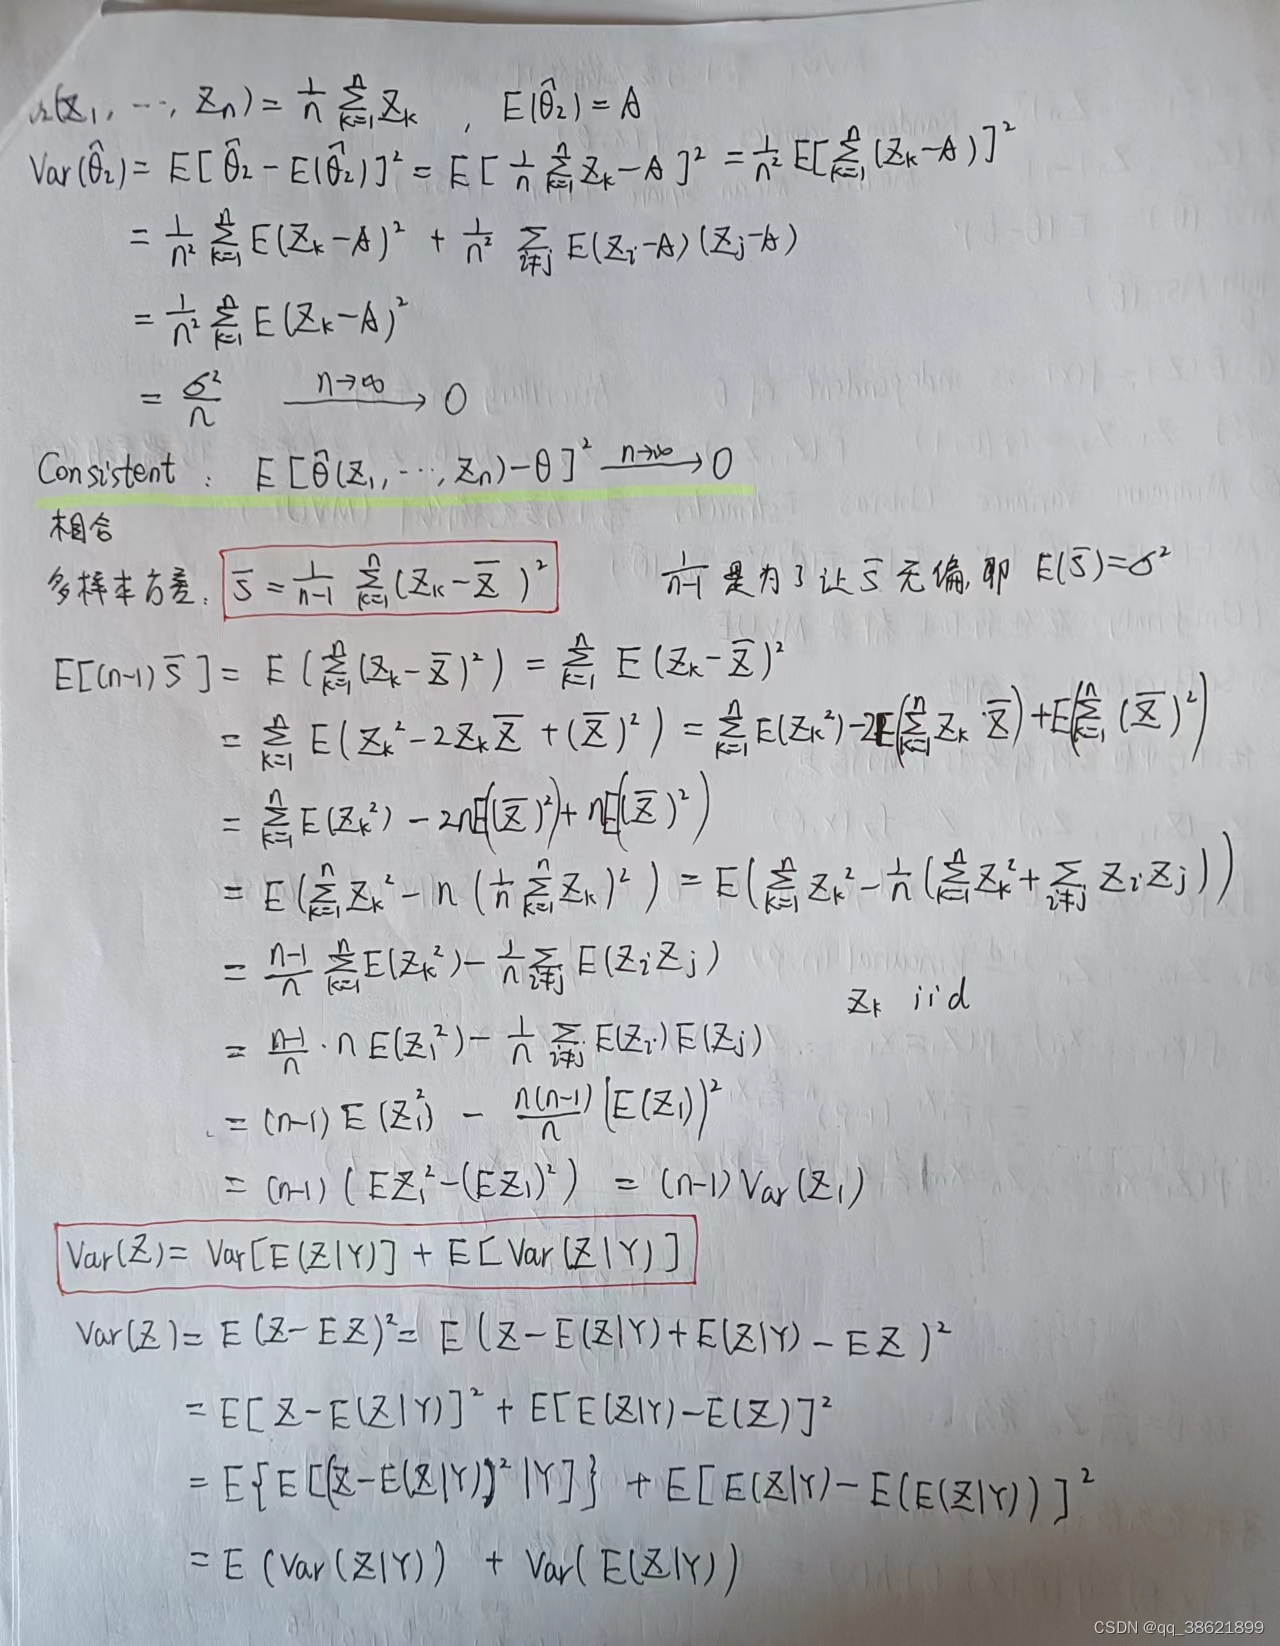 (Z₁, ⋯, Zₙ) = 1/n ∑_{k=1}^{n} Z_k , E(θ̂₂) = A
Var(θ̂₂) = E[θ̂₂ − E(θ̂₂)]² = E[1/n ∑_{k=1}^{n} Z_k − A]² = 1/n² E[∑_{k=1}^{n} (Z_k − A)]²
= 1/n² ∑_{k=1}^{n} E(Z_k − A)² + 1/n² ∑_{i≠j} E(Z_i − A)(Z_j − A)
= 1/n² ∑_{k=1}^{n} E(Z_k − A)²
= σ²/n —n→∞→ 0
Consistent : E[θ̂(Z₁, ⋯, Zₙ) − θ]² —n→∞→ 0
相合
多样本方差: S̄ = 1/(n−1) ∑_{k=1}^{n} (Z_k − Z̄)² 1/(n−1) 是为了让 S̄ 无偏, 即 E(S̄) = σ²
E[(n−1)S̄] = E(∑_{k=1}^{n} (Z_k − Z̄)²) = ∑_{k=1}^{n} E(Z_k − Z̄)²
= ∑_{k=1}^{n} E(Z_k² − 2Z_k Z̄ + (Z̄)²) = ∑_{k=1}^{n} E(Z_k²) − 2E(∑_{k=1}^{n} Z_k · Z̄) + E(∑_{k=1}^{n} (Z̄)²)
= ∑_{k=1}^{n} E(Z_k²) − 2nE((Z̄)²) + nE((Z̄)²)
= E(∑_{k=1}^{n} Z_k² − n(1/n ∑_{k=1}^{n} Z_k)²) = E(∑_{k=1}^{n} Z_k² − 1/n (∑_{k=1}^{n} Z_k² + ∑_{i≠j} Z_i Z_j))
= (n−1)/n ∑_{k=1}^{n} E(Z_k²) − 1/n ∑_{i≠j} E(Z_i Z_j)
Z_k iid
= (n−1)/n · n E(Z₁²) − 1/n ∑_{i≠j} E(Z_i) E(Z_j)
= (n−1) E(Z₁²) − n(n−1)/n (E(Z₁))²
= (n−1) (EZ₁² − (EZ₁)²) = (n−1) Var(Z₁)
Var(Z) = Var[E(Z|Y)] + E[Var(Z|Y)]
Var(Z) = E(Z − EZ)² = E(Z − E(Z|Y) + E(Z|Y) − EZ)²
= E[Z − E(Z|Y)]² + E[E(Z|Y) − E(Z)]²
= E{E[(Z − E(Z|Y))² |Y]} + E[E(Z|Y) − E(E(Z|Y))]²
= E(Var(Z|Y)) + Var(E(Z|Y))
CSDN @qq_38621899